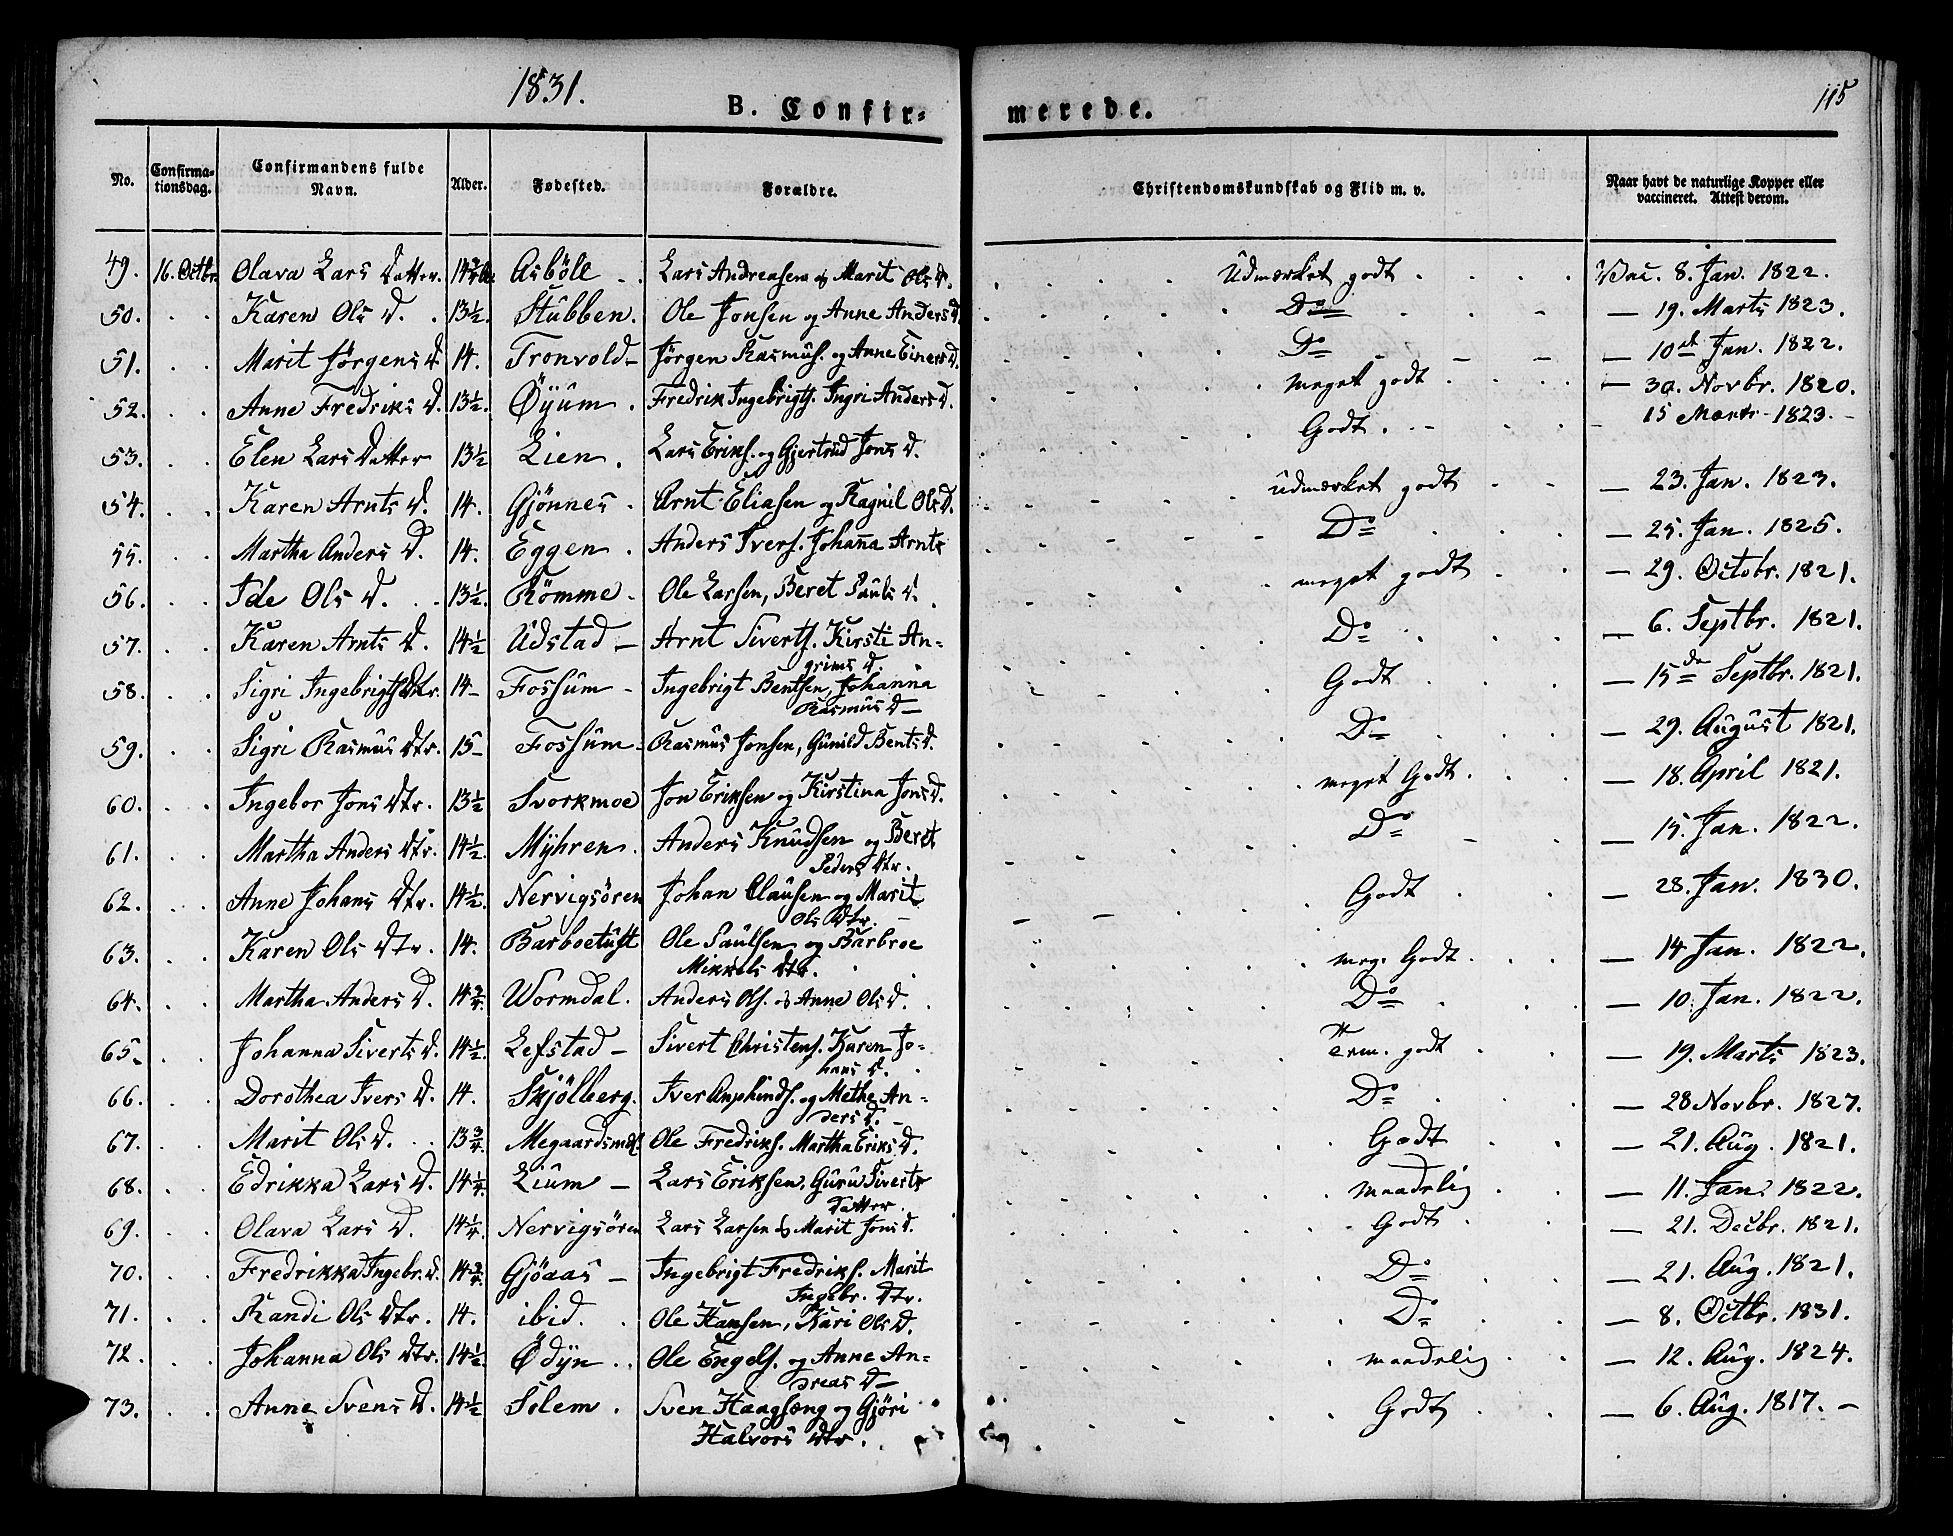 1831.
115
B. Confir= merede.
No. Confirma=tionsdag. Confirmandens fulde Navn. Alder. Fødested. Forældre. Christendomskundskab og Flid m. v. Naar havt de naturlige Kopper eller vaccineret. Attest derom.
49. 16. Octbr. Olava Lars Datter. Asböll Lars Andreasen og Marit Ols D. Udmærket godt Vac. 8. Jan. 1822.
50. Karen Ols D. 13½. Stubben. Ole Jonsen og Anne Anders D. Do — 19. Marts 1823.
51. Marit Jørgens D. 14. Tronvold Jørgen Rasmus. og Anne Einers D. Do — 10de Jan. 1822.
52. Anne Fredriks D. 13½. Øyum Fredrik Ingebrigts. Ingri Anders D. meget godt — 30. Novbr. 1820.
53. Elen Lars Datter 13½ Lien. Lars Eriks. og Gjertrud Jons D. Godt. — 15 Marts 1823.
54. Karen Arnts D. 14. Gjönnes Arnt Eliasen og Ragnil Ols D. udmærket godt — 23. Jan. 1823.
55. Martha Anders D. 14. Eggen Anders Ivers. Johanna Arnts Do — 25. Jan. 1825.
56. Ide Ols D. 13½. Römme Ole Larsen, Beret Pauls D. meget godt — 29. Octobr. 1821.
57. Karen Arnts D. 14½ Udstad Arnt Siverts. Kirsti An=
grims D. Do — 6. Septbr. 1821.
58. Sigri Ingebrigts Dtr. 14 Fossum Ingebrigt Bentsen, Johanna
Rasmus D Godt — 15de Septbr. 1821.
59. Sigri Rasmus Dtr. 15 Fossum Rasmus Jonsen, Gunild Bents D. Do — 29. August 1821.
60. Ingebor Jons Dtr. 13½ Svorkmoe Jon Eriksen og Kirstina Jons D. meget Godt. — 18. April 1821.
61. Martha Anders Dtr. 14½. Myhren. Anders Knudsen og Beret
Peders Dtr. Do — 15. Jan. 1822.
62. Anne Johans Dtr. 14½. Nervigsören Johan Clausen og Marit
Ols Dtr. Godt — 28. Jan. 1830.
63. Karen Ols Dtr. 14. Barboetuft Ole Paulsen og Barbroe
Mikkels Dtr. meg. Godt. — 14 Jan. 1822.
64. Martha Anders D. 14¾. Wormdal. Anders Ols. og Anne Ols D. Do — 10. Jan. 1822.
65. Johanna Siverts D. 14½. Lefstad Sivert Christens. Karen Jo=
hans D. godt — 19. Marts 1823.
66. Dorothea Ivers D. 14. Skjölberg. Iver og Methe An=
ders D. Do — 28 Novbr. 1827.
67. Marit Ols D. 13¾. Ole Fredriks. Martha Eriks D. Godt — 21. Aug. 1821.
68. Edrikka Lars D. 14¼. Lium Lars Eriksen, Guru Siverts
Datter maadelig — 11. Jan. 1822.
69. Olava Lars D. 14¼. Nervigsören Lars Larsen og Marit Jons D. Godt — 21. Decbr. 1821.
70. Fredrikka Ingebr. D. 14¾. Gjöaas Ingebrigt Fredriks. Marit
Ingebr. Dtr. Do — 21. Aug. 1821.
71. Randi Ols Dtr. 14. ibid. Ole Hansen, Kari Ols D. Do — 8. Octbr. 1831.
72. Johanna Ols Dtr. 14½. Ødyn Ole Engels. og Anne An=
dreas D maadelig — 12. Aug. 1824.
73. Anne Svens D. 14½ Solem. Sven og Gjöri
Halvors Dtr. Godt — 6. Aug. 1817.